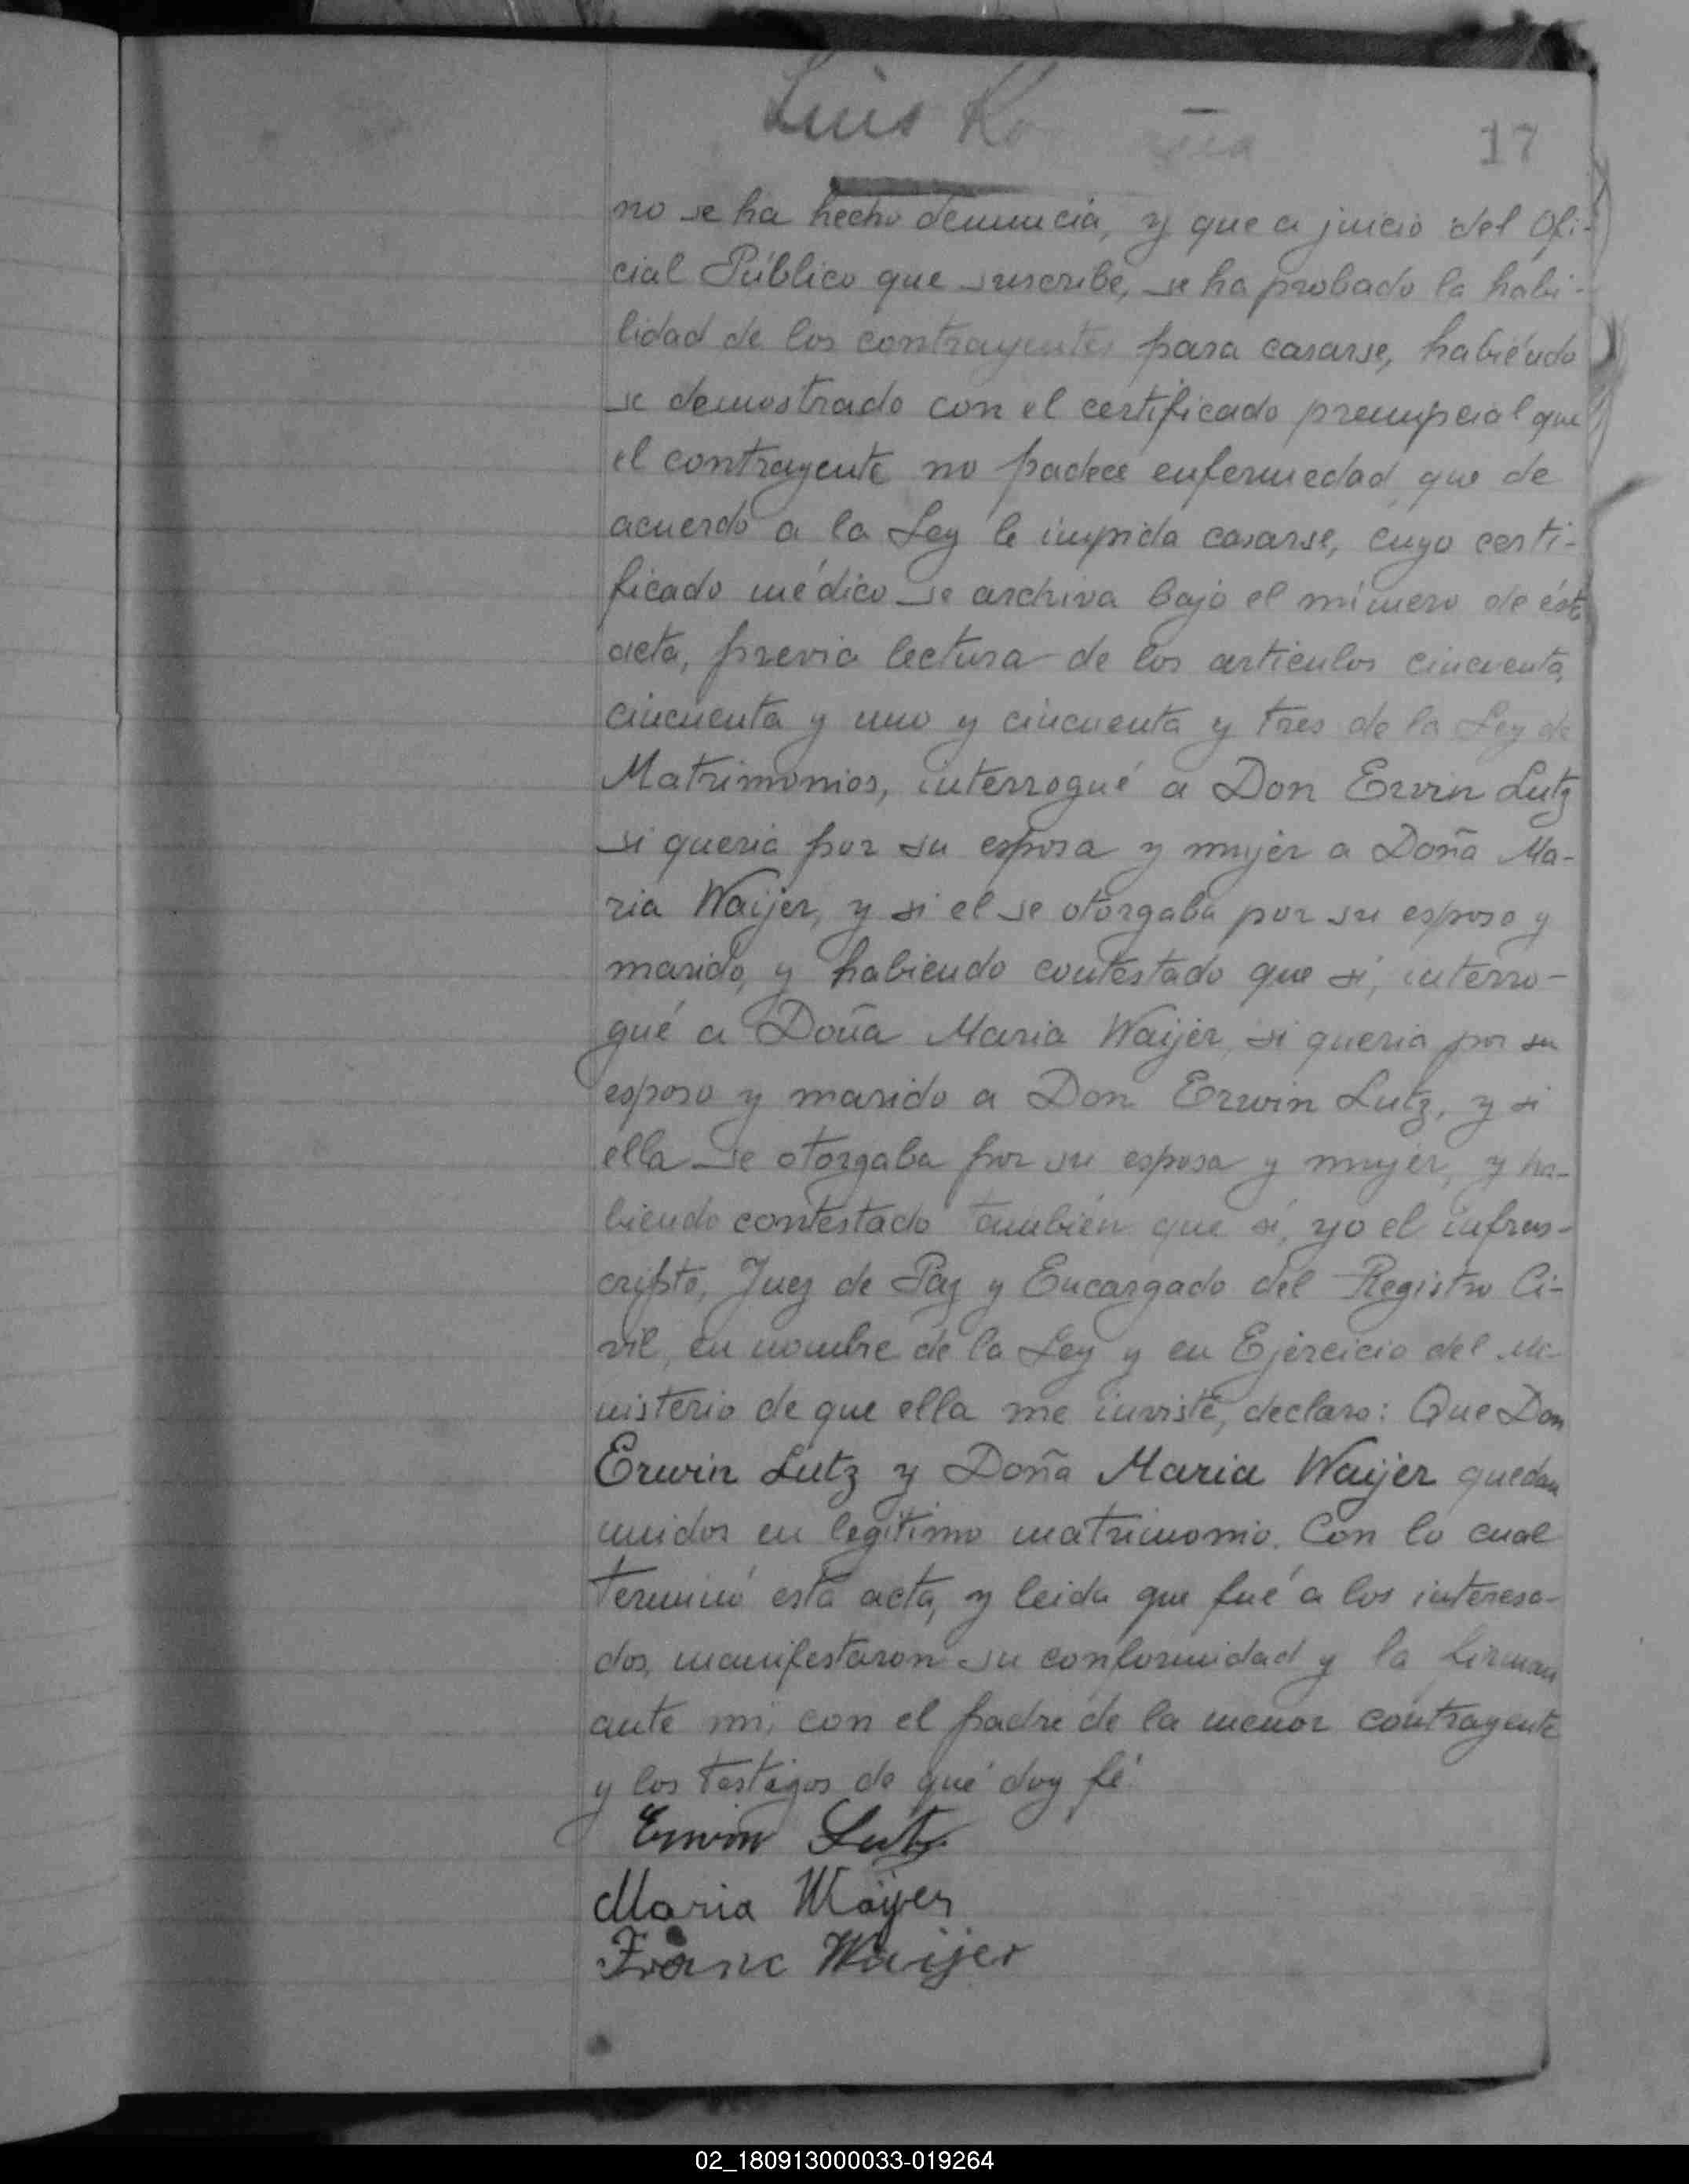 Luis
17
no se ha hecho denuncia, y que a juicio del Ofi-
cial Público que suscribe, se ha probado la habi-
lidad de los contrayentes para casarse, habiéndo
se demostrado con el certificado prenupcial que
el contrayente no padece enfermedad que de
acuerdo a la Ley le impida casarse, cuyo certi-
ficado médico se archiva bajo el número de ésta
acta, previa lectura de los artículos cincuenta,
cincuenta y uno y cincuenta y tres de la Ley de
Matrimonios, interrogué a Don Erwin Lutz
si queria por su esposa y mujer a Doña Ma-
ria Waijer, y si el se otorgaba por su esposo y
marido, y habiendo contestado que si, interro-
gué a Doña Maria Waijer, si queria por su
esposo y marido a Don Erwin Lutz, y si
ella se otorgaba por su esposa y mujer, y ha-
biendo contestado también que sí, yo el infras-
cripto, Juez de Paz y Encargado del Registro Ci-
vil, en nombre de la Ley y en Ejercicio del Mi-
nisterio de que ella me inviste, declaro: Que Don
Erwin Lutz y Doña Maria Waijer quedan
unidos en legítimo matrimonio. Con lo cual
terminó esta acta, y leida que fué a los interesa-
dos, manifestaron su conformidad y la firman
ante mi, con el padre de la menor contrayente
y los testigos de qué doy fé.
Erwin Lutz
Maria Wayer
Franc Waijer
02_180913000033-019264